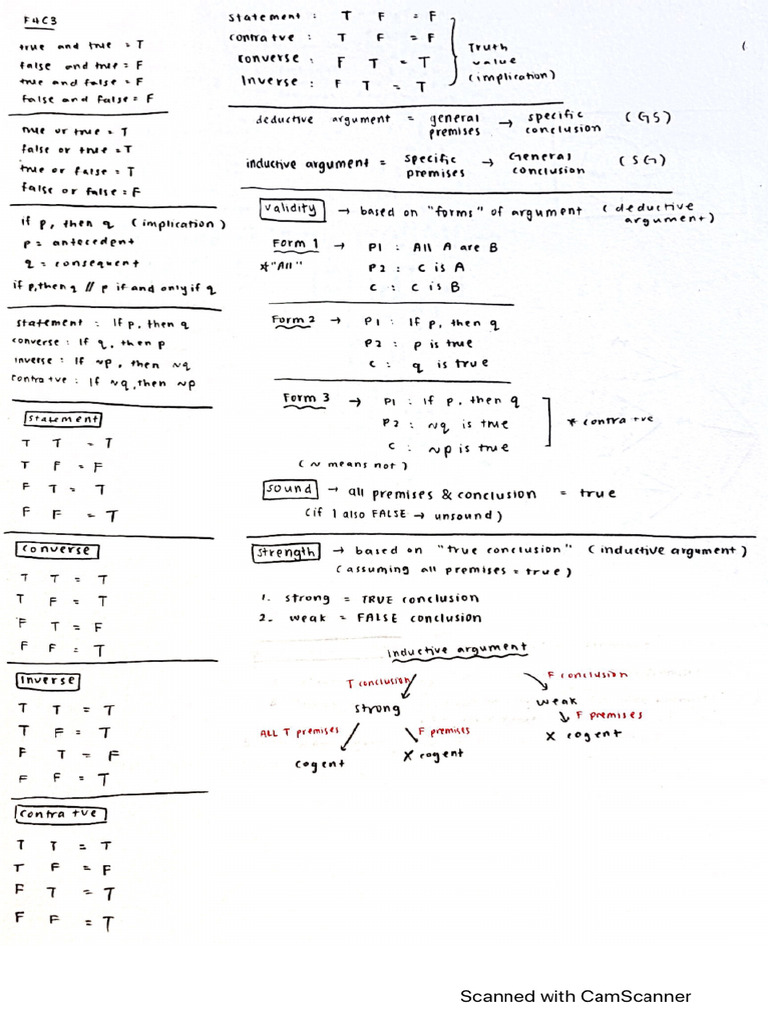 F4C3
true and true = T
false and true = F
true and false = F
false and false = F
true or true = T
false or true = T
true or false = T
false or false = F
if p, then q (implication)
p = antecedent
q = consequent
if p, then q // p if and only if q
statement : If p, then q
converse : If q, then p
inverse : If ~p, then ~q
contra tve : If ~q, then ~p
statement
T T = T
T F = F
F T = T
F F = T
converse
T T = T
T F = T
F T = F
F F = T
Inverse
T T = T
T F = T
F T = F
F F = T
contra tve
T T = T
T F = F
F T = T
F F = T
statement : T F = F
contra tve : T F = F
converse : F T = T
Inverse : F T = T
Truth
value
(implication)
deductive argument = general premises → specific conclusion (GS)
inductive argument = specific premises → General conclusion (SG)
validity → based on "forms" of argument (deductive argument)
Form 1 → P1 : All A are B
*"All" P2 : C is A
C : C is B
Form 2 → P1 : If p, then q
P2 : p is true
C : q is true
Form 3 → P1 : If p, then q
P2 : ~q is true * contra tve
C : ~p is true
(~ means not)
sound → all premises & conclusion = true
(if 1 also FALSE → unsound)
strength → based on "true conclusion" (inductive argument)
(assuming all premises = true)
1. strong = TRUE conclusion
2. weak = FALSE conclusion
inductive argument
T conclusion F conclusion
strong weak
ALL T premises F premises F premises
cogent X cogent X cogent
Scanned with CamScanner